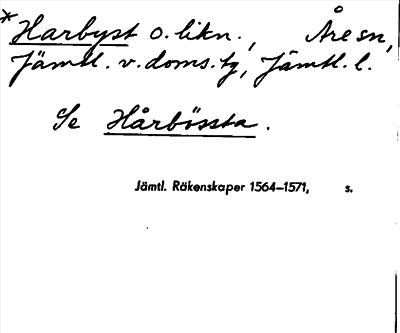 *Harbyst o. likn., Åre sn,
Jämtl. v. doms. tg, Jämtl. l.
Se Hårbössta.
Jämtl. Räkenskaper 1564–1571, s.